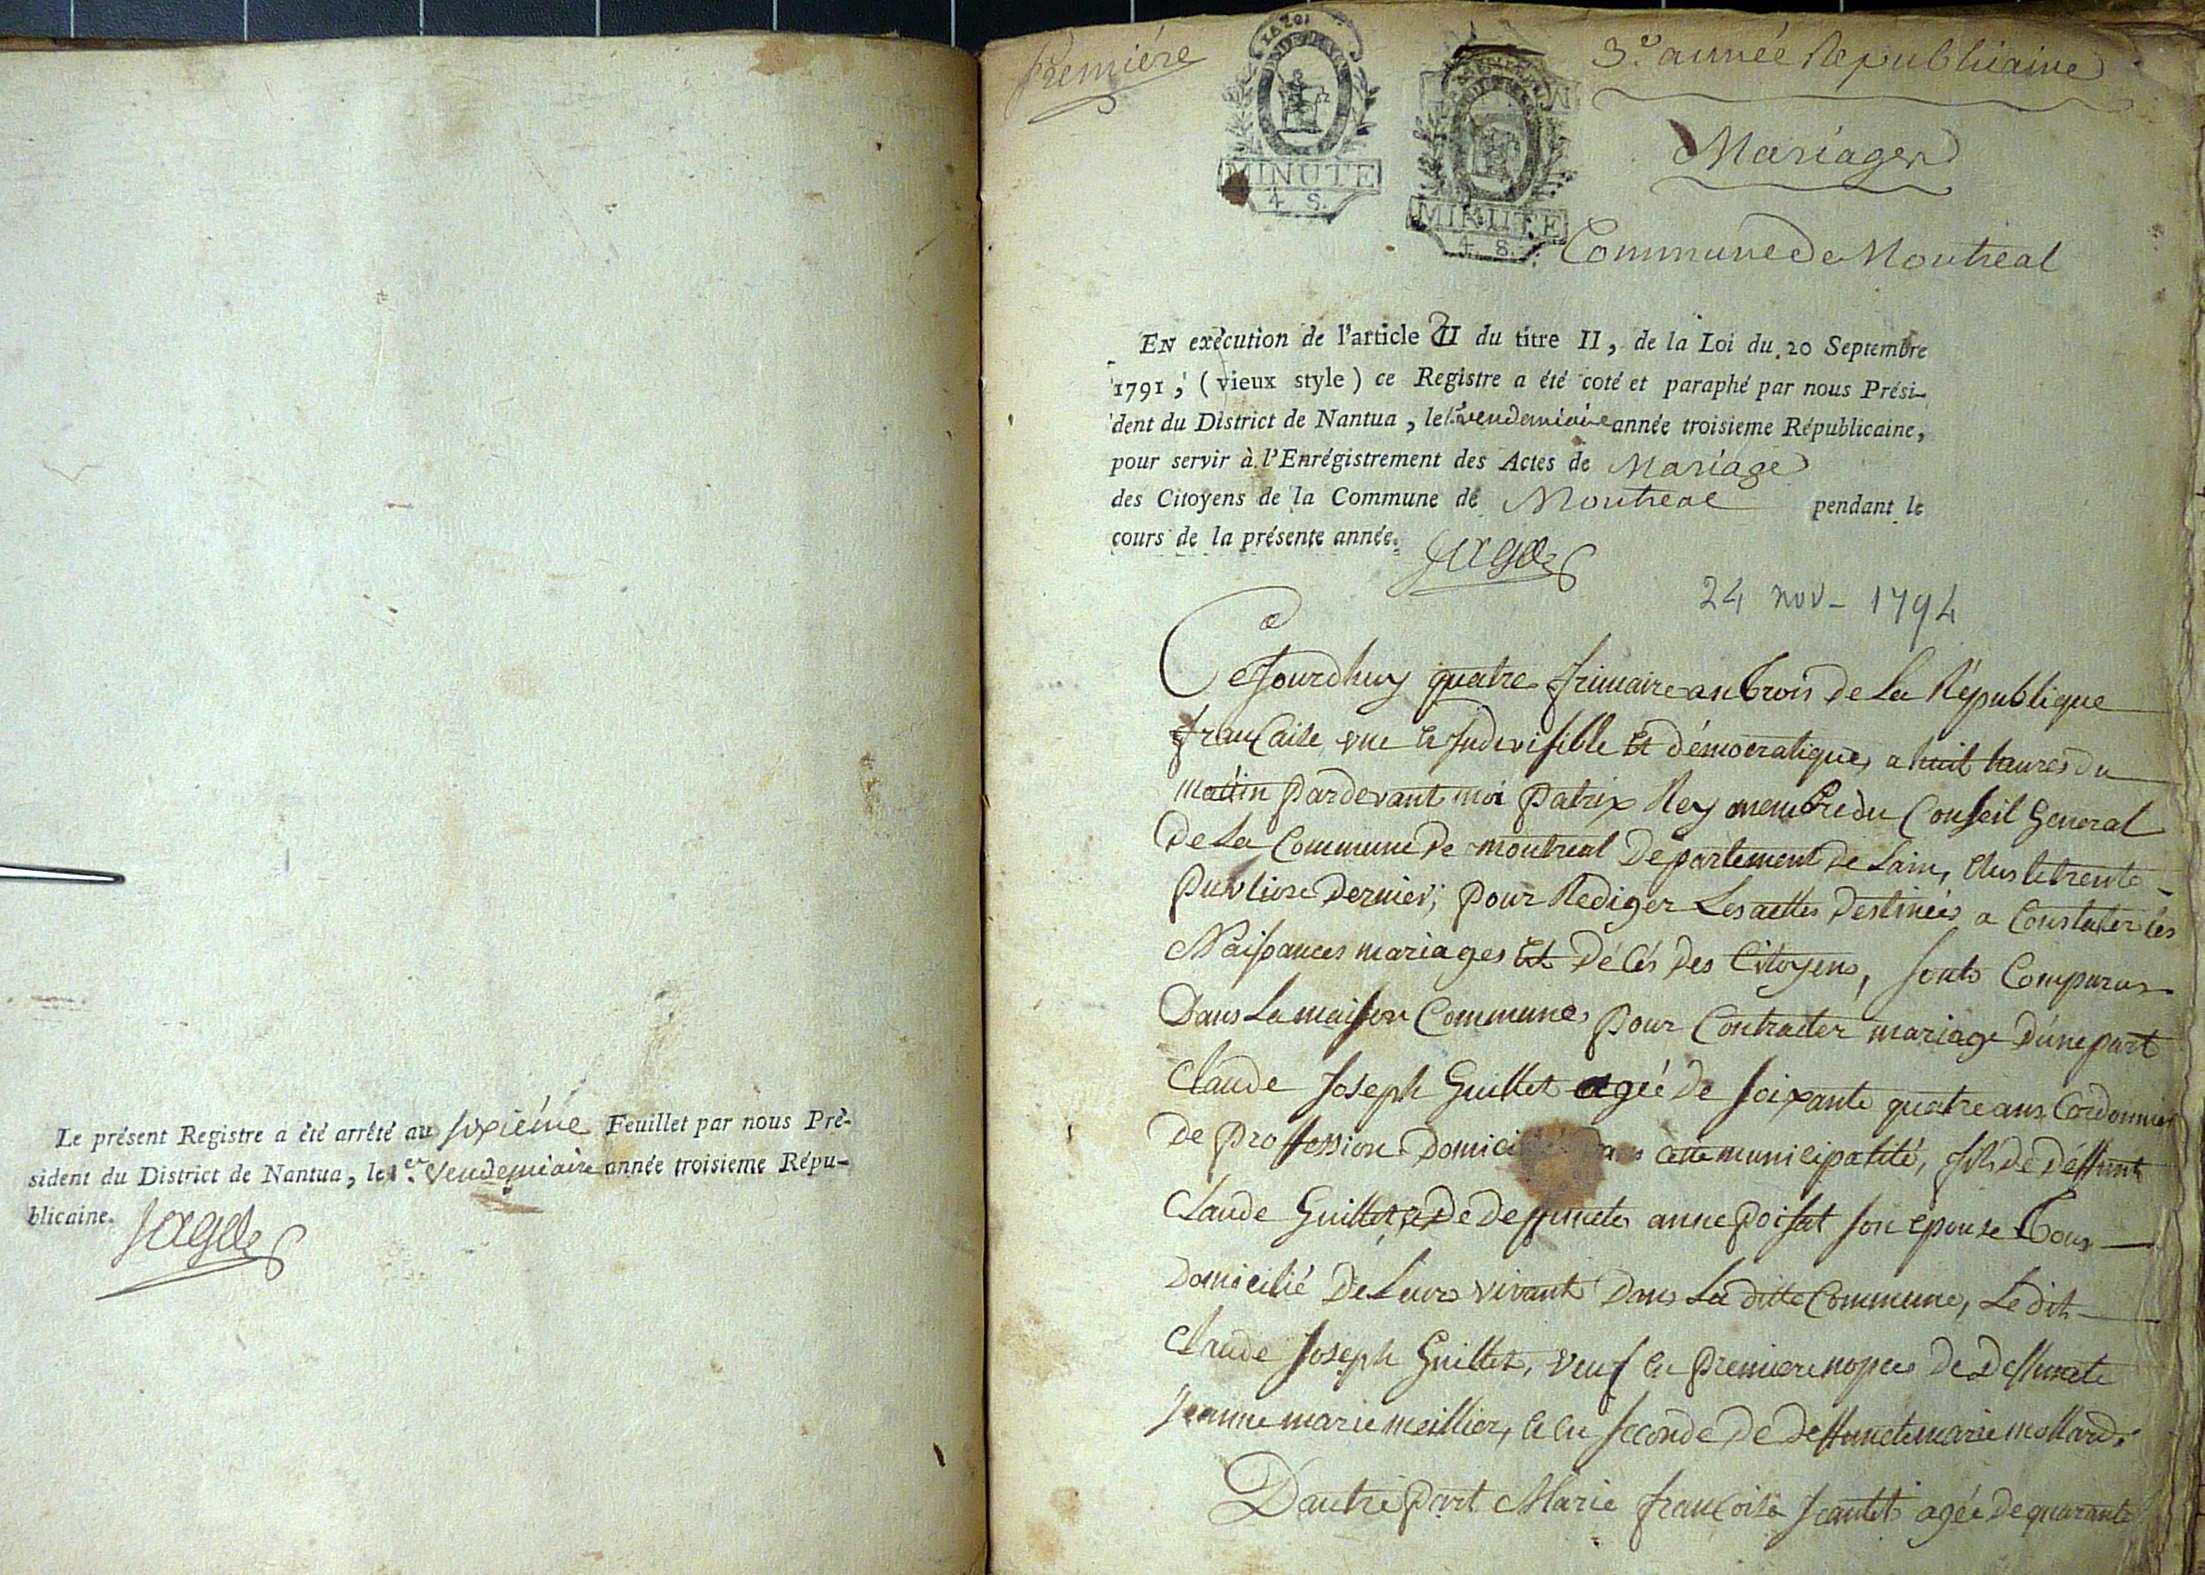 Le présent Registre a été arrêté au sixiéme Feuillet par nous Pré-
sident du District de Nantua, le 1er. Vendemiaire année troisieme Répu-
blicaine.
premiére
MINUTE
4 S.
MINUTE
4. S.
3e. année Republicaine
Mariages
Commune de Montreal
EN exécution de l'article II du titre II, de la Loi du 20 Septembre
1791, (vieux style) ce Registre a été coté et paraphé par nous Prési-
dent du District de Nantua, le 1er vendemiaire année troisieme Républicaine,
pour servir à l'Enrégistrement des Actes de Mariage
des Citoyens de la Commune de Montreal pendant le
cours de la présente année.
24 nov - 1794
Cejourdhuy quatre frimaire an trois de La République
française une et Indivisible et démocratique, a huit heures du
matin pardevant moi patrix Rey membre du Conseil General
De La Commune De montreal Département de Lain, élus le trente
Dernier, pour Rediger Les actes Destinées a Constater les
Naissances mariages et Décés Des Citoyens, sonts Comparus
Dans La maison Commune, pour Contracter mariage D'une part
Claude Joseph Guillet agée de soixante quatre ans Cordonnier
De proffession Domicilié Dans cette municipalité, fils de Deffunt
Claude Guillet, et De Deffuncte anne poisat son épouse tous
Domicilié De Leurs vivants Dans La ditte Commune, Le dit
Claude Joseph Guillet, veuf en premiere nopces de Deffuncte
Jeanne marie meillier, et en seconde De Deffuncte marie mollard.
D'autre part Marie françoise Jeantet agée de quarante